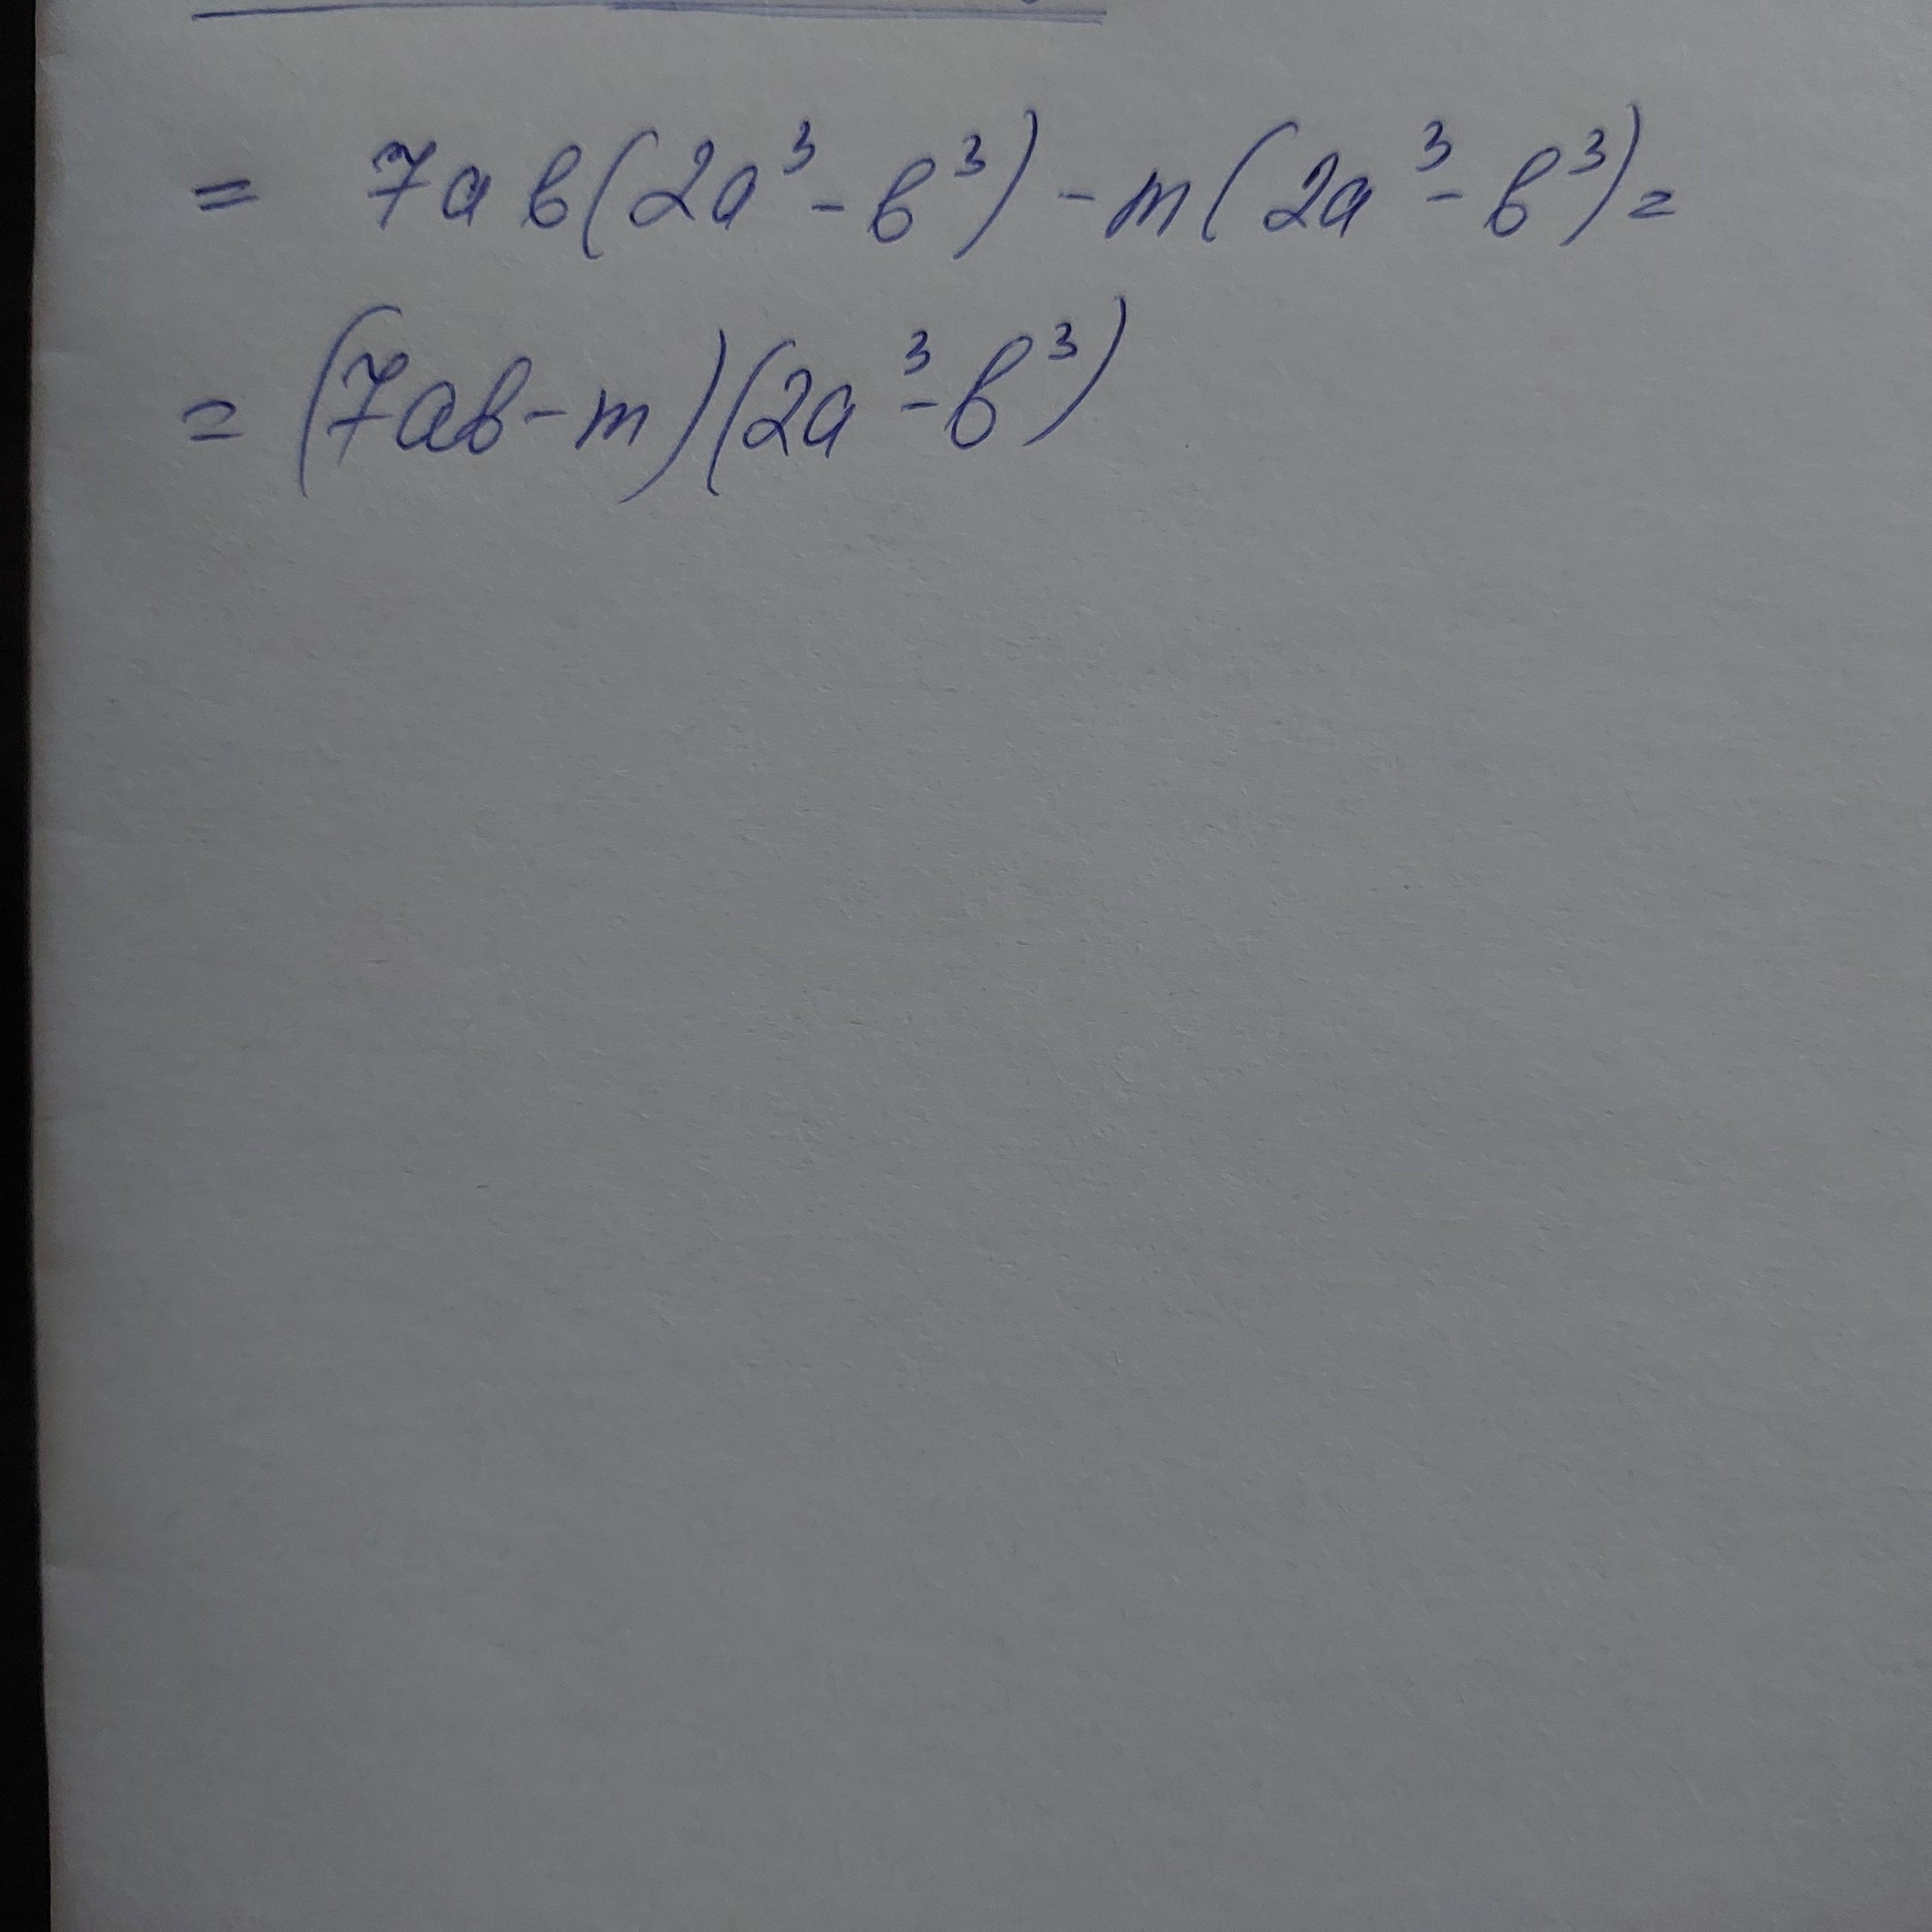 = 7ab(2a³-b³)-m(2a³-b³)=
= (7ab-m)(2a³-b³)